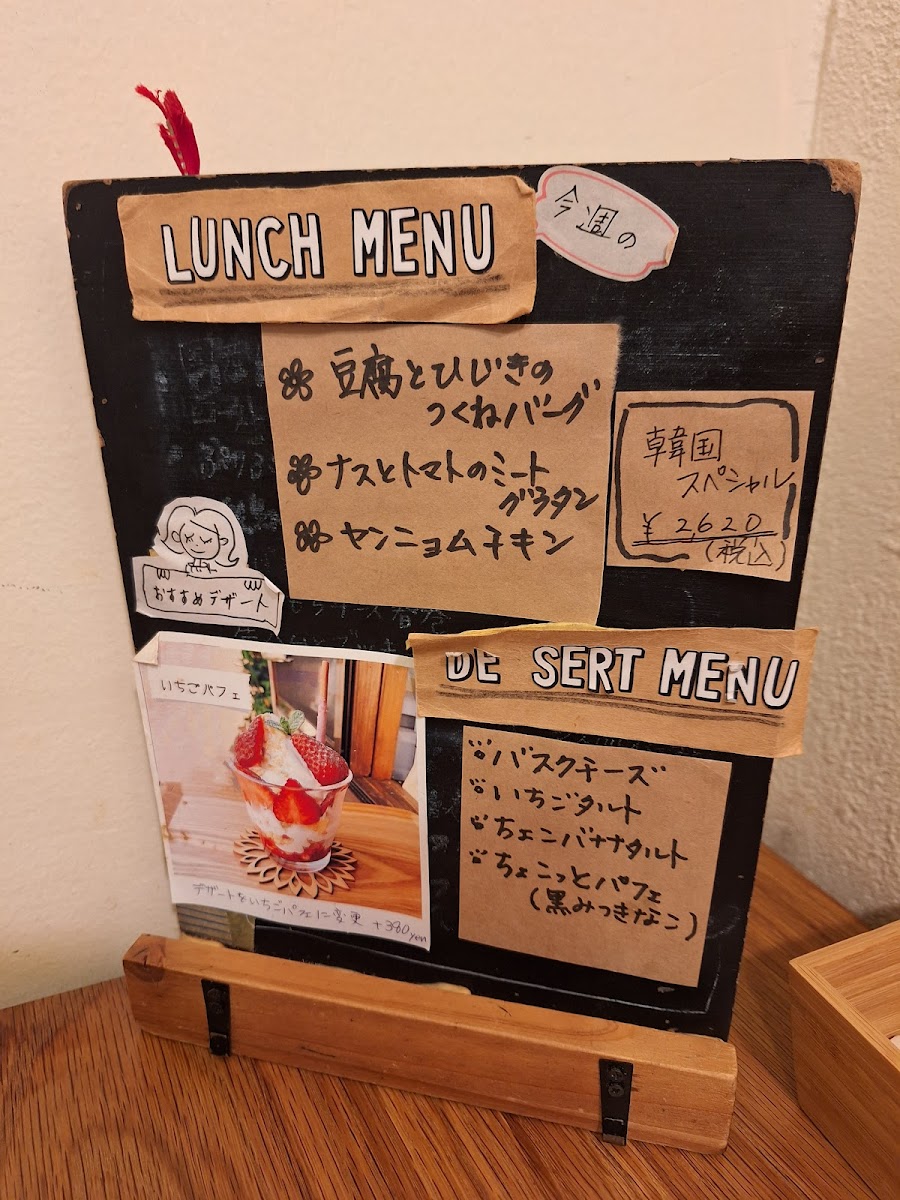 LUNCH MENU
今週の
豆腐とひじきの
つくねバーグ
ナスとトマトのミート
グラタン
ヤンニョムチキン
韓国
スペシャル
¥2,620
(税込)
おすすめデザート
いちごパフェ
デザートをいちごパフェに変更 +380yen
DE SERT MENU
バスクチーズ
いちごタルト
ちェンバナナタルト
ちょこっとパフェ
(黒みつきなこ)